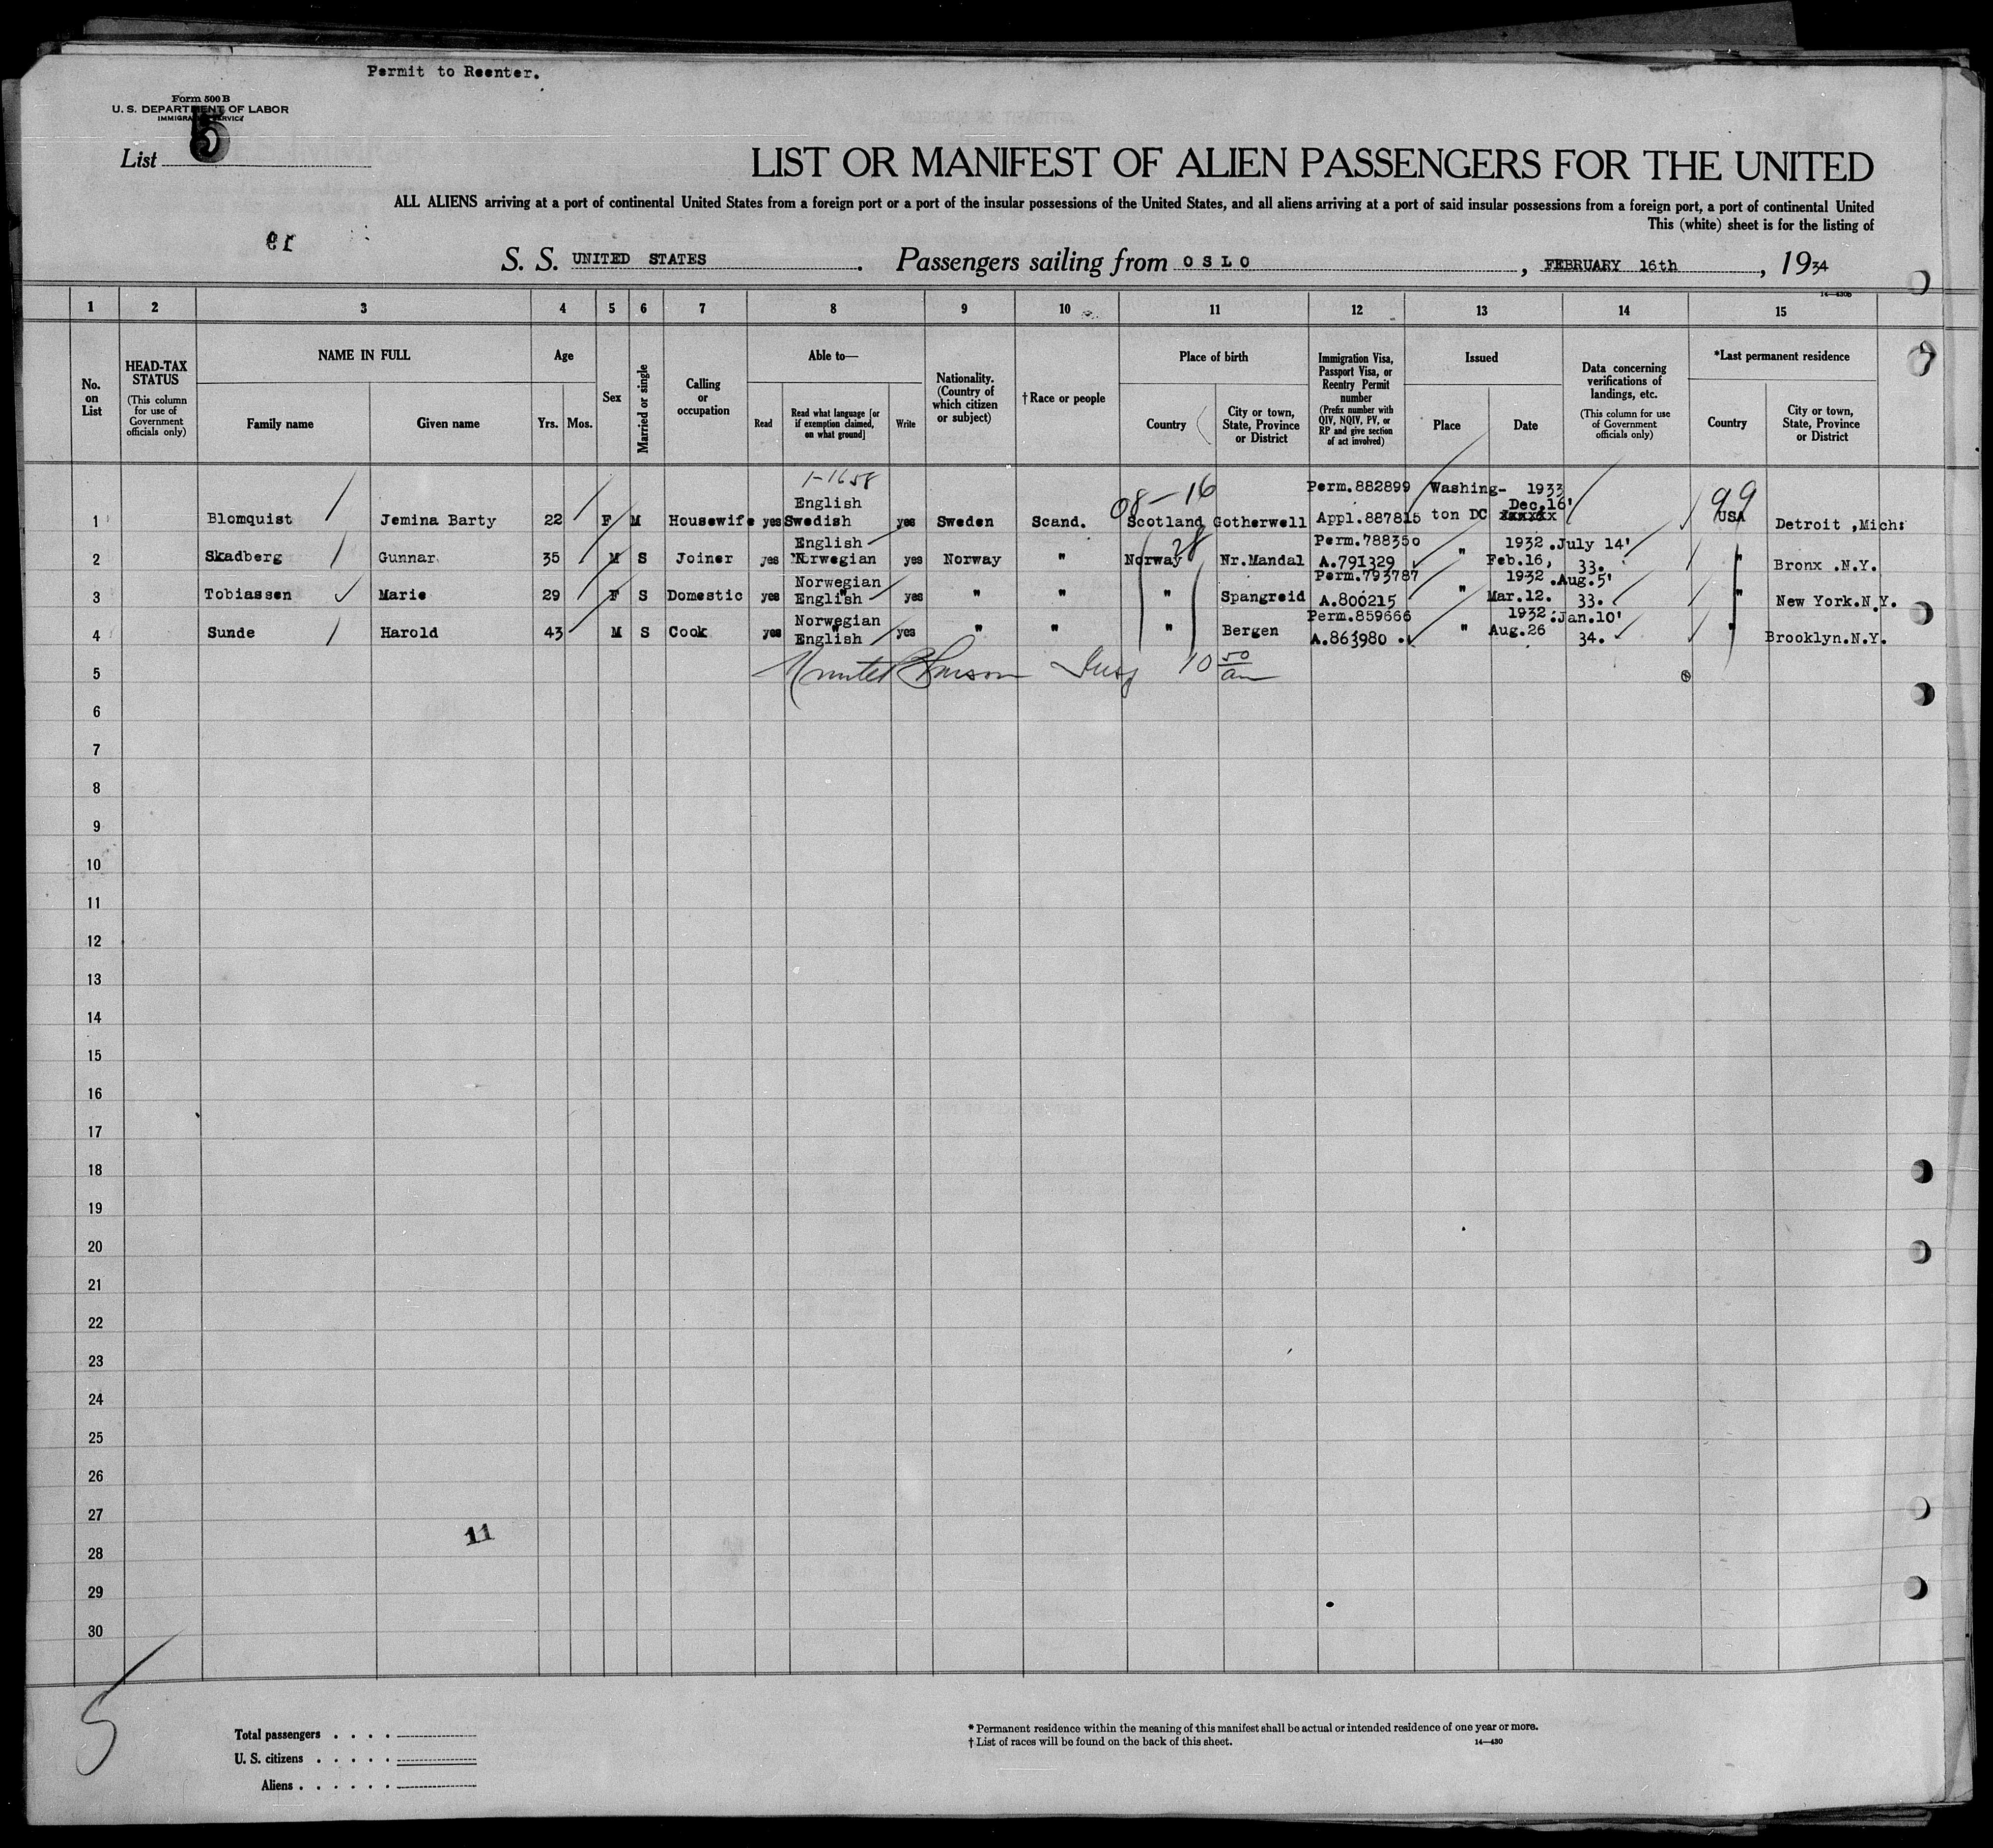 Permit to Reenter.
Form 500 B
U. S. DEPARTMENT OF LABOR
IMMIGRATION SERVICE
List 5
LIST OR MANIFEST OF ALIEN PASSENGERS FOR THE UNITED
ALL ALIENS arriving at a port of continental United States from a foreign port or a port of the insular possessions of the United States, and all aliens arriving at a port of said insular possessions from a foreign port, a port of continental United
This (white) sheet is for the listing of
er
S. S. UNITED STATES . Passengers sailing from OSLO , FEBRUARY 16th , 1934
14—430B
1 2 3 4 5 6 7 8 9 10 11 12 13 14 15
No. on List
HEAD-TAX STATUS
(This column for use of Government officials only)
NAME IN FULL
Family name
Given name
Age
Yrs. Mos.
Sex
Married or single
Calling or occupation
Able to—
Read
Read what language [or if exemption claimed, on what ground]
Write
Nationality. (Country of which citizen or subject)
† Race or people
Place of birth
Country
City or town, State, Province or District
Immigration Visa, Passport Visa, or Reentry Permit number
(Prefix number with QIV, NQIV, PV, or RP and give section of act involved)
Issued
Place
Date
Data concerning verifications of landings, etc.
(This column for use of Government officials only)
*Last permanent residence
Country
City or town, State, Province or District
1-1658
08-16
99
1 Blomquist Jemina Barty 22 F M Housewife yes English Swedish yes Sweden Scand. Scotland Gotherwell Perm.882899 Appl.887815 Washing-ton DC 1933 Dec.16' USA Detroit ,Mich:
28
2 Skadberg Gunnar 35 M S Joiner yes English Norwegian yes Norway " Norway Nr.Mandal Perm.788350 A.791329 " 1932.July 14' Feb.16, 33. " Bronx .N.Y.
3 Tobiassen Marie 29 F S Domestic yes Norwegian English yes " " " Spangreid Perm.793787 A.800215 " 1932.Aug.5' Mar.12. 33. " New York.N.Y.
4 Sunde Harold 43 M S Cook yes Norwegian English yes " " " Bergen Perm.859666 A.863980 " 1932:Jan.10' Aug.26 34. " Brooklyn.N.Y.
5 10 50 am
6
7
8
9
10
11
12
13
14
15
16
17
18
19
20
21
22
23
24
25
26
27
11
28
29
30
5
Total passengers . . . .
U. S. citizens . . . . .
Aliens . . . . . .
* Permanent residence within the meaning of this manifest shall be actual or intended residence of one year or more.
† List of races will be found on the back of this sheet.
14—430